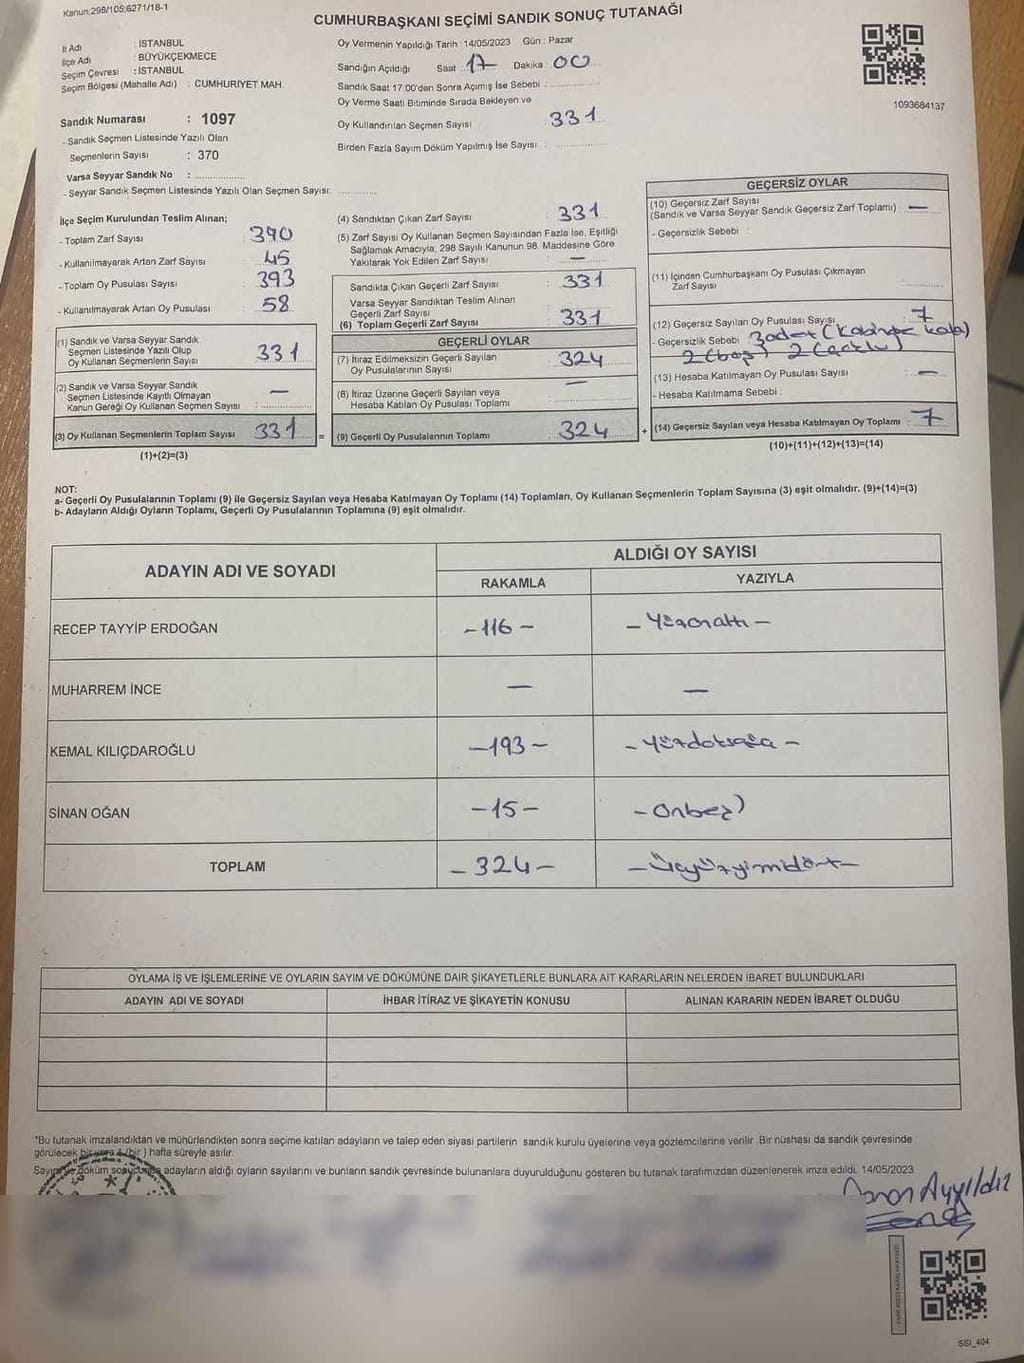 Kanun:298/105;6271/18-1
CUMHURBAŞKANI SEÇİMİ SANDIK SONUÇ TUTANAĞI
İl Adı : İSTANBUL
İlçe Adı : BÜYÜKÇEKMECE
Seçim Çevresi : İSTANBUL
Seçim Bölgesi (Mahalle Adı) : CUMHURİYET MAH.
Sandık Numarası : 1097
- Sandık Seçmen Listesinde Yazılı Olan
Seçmenlerin Sayısı : 370
Varsa Seyyar Sandık No :
- Seyyar Sandık Seçmen Listesinde Yazılı Olan Seçmen Sayısı:
Oy Vermenin Yapıldığı Tarih : 14/05/2023 Gün : Pazar
Sandığın Açıldığı Saat : 17 Dakika : 00
Sandık Saat 17:00'den Sonra Açımış İse Sebebi :
Oy Verme Saati Bitiminde Sırada Bekleyen ve
Oy Kullandırılan Seçmen Sayısı : 331
Birden Fazla Sayım Döküm Yapılmış İse Sayısı :
1093684137
İlçe Seçim Kurulundan Teslim Alınan;
- Toplam Zarf Sayısı : 390
- Kullanılmayarak Artan Zarf Sayısı : 45
- Toplam Oy Pusulası Sayısı : 393
- Kullanılmayarak Artan Oy Pusulası : 58
(1) Sandık ve Varsa Seyyar Sandık
Seçmen Listesinde Yazılı Olup
Oy Kullanan Seçmenlerin Sayısı : 331
(2) Sandık ve Varsa Seyyar Sandık
Seçmen Listesinde Kayıtlı Olmayan
Kanun Gereği Oy Kullanan Seçmen Sayısı : —
(3) Oy Kullanan Seçmenlerin Toplam Sayısı : 331
(1)+(2)=(3)
(4) Sandıktan Çıkan Zarf Sayısı : 331
(5) Zarf Sayısı Oy Kullanan Seçmen Sayısından Fazla İse, Eşitliği
Sağlamak Amacıyla; 298 Sayılı Kanunun 98. Maddesine Göre
Yakılarak Yok Edilen Zarf Sayısı : —
Sandıkta Çıkan Geçerli Zarf Sayısı : 331
Varsa Seyyar Sandıktan Teslim Alınan
Geçerli Zarf Sayısı :
(6) Toplam Geçerli Zarf Sayısı : 331
GEÇERLİ OYLAR
(7) İtiraz Edilmeksizin Geçerli Sayılan
Oy Pusulalarının Sayısı : 324
(8) İtiraz Üzerine Geçerli Sayılan veya
Hesaba Katılan Oy Pusulası Toplamı : —
= (9) Geçerli Oy Pusulalarının Toplamı : 324
GEÇERSİZ OYLAR
(10) Geçersiz Zarf Sayısı
(Sandık ve Varsa Seyyar Sandık Geçersiz Zarf Toplamı) : —
- Geçersizlik Sebebi :
(11) İçinden Cumhurbaşkanı Oy Pusulası Çıkmayan
Zarf Sayısı :
(12) Geçersiz Sayılan Oy Pusulası Sayısı : 7
- Geçersizlik Sebebi : 3 adet (kabinde kala)
2 (boş) 2
(13) Hesaba Katılmayan Oy Pusulası Sayısı : —
- Hesaba Katılmama Sebebi :
+ (14) Geçersiz Sayılan veya Hesaba Katılmayan Oy Toplamı : 7
(10)+(11)+(12)+(13)=(14)
NOT:
a- Geçerli Oy Pusulalarının Toplamı (9) ile Geçersiz Sayılan veya Hesaba Katılmayan Oy Toplamı (14) Toplamları, Oy Kullanan Seçmenlerin Toplam Sayısına (3) eşit olmalıdır. (9)+(14)=(3)
b- Adayların Aldığı Oyların Toplamı, Geçerli Oy Pusulalarının Toplamına (9) eşit olmalıdır.
ADAYIN ADI VE SOYADI ALDIĞI OY SAYISI
RAKAMLA YAZIYLA
RECEP TAYYİP ERDOĞAN -116- - Yüzonaltı -
MUHARREM İNCE — —
KEMAL KILIÇDAROĞLU -193- - Yüzdoksanüç -
SİNAN OĞAN -15- - Onbeş)
TOPLAM -324- - Üçyüzyirmidört -
OYLAMA İŞ VE İŞLEMLERİNE VE OYLARIN SAYIM VE DÖKÜMÜNE DAİR ŞİKAYETLERLE BUNLARA AİT KARARLARIN NELERDEN İBARET BULUNDUKLARI
ADAYIN ADI VE SOYADI İHBAR İTİRAZ VE ŞİKAYETİN KONUSU ALINAN KARARIN NEDEN İBARET OLDUĞU
*Bu tutanak imzalandıktan ve mühürlendikten sonra seçime katılan adayların ve talep eden siyasi partilerin sandık kurulu üyelerine veya gözlemcilerine verilir. Bir nüshası da sandık çevresinde
görülecek bir yere 1 (bir) hafta süreyle asılır.
Sayım ve döküm sonucunda adayların aldığı oyların sayılarını ve bunların sandık çevresinde bulunanlara duyurulduğunu gösteren bu tutanak tarafımızdan düzenlenerek imza edildi. 14/05/2023
Ayyıldız
SSI_404